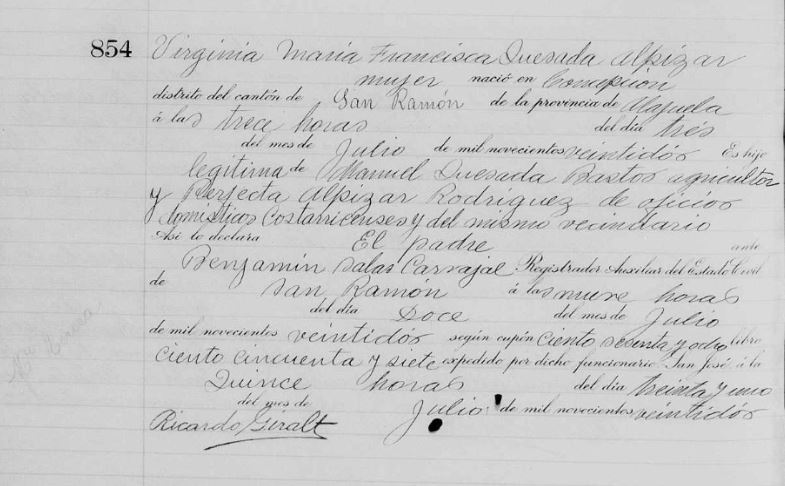 854 Virginia Maria Francisca Quesada Alpizar
mujer nació en Concepción
distrito del cantón de San Ramón de la provincia de Alajuela
á las trece horas del día trés
del mes de Julio de mil novecientos veintidós Es hijo
legítima de Manuel Quesada Bastos agricultor
y Perfecta Alpizar Rodríguez de oficios
domésticos Costarricenses y del mismo vecindario
Así lo declara El padre ante
Benjamín Salas Carvajal Registrador Auxiliar del Estado Civil
de San Ramón á las nueve horas
del día Doce del mes de Julio
de mil novecientos veintidós según cupón ciento sesenta y ocho libro
ciento cincuenta y siete expedido por dicho funcionario San José, á la
Quince horas del día treinta y uno
del mes de Julio de mil novecientos veintidós
Ricardo Giralt